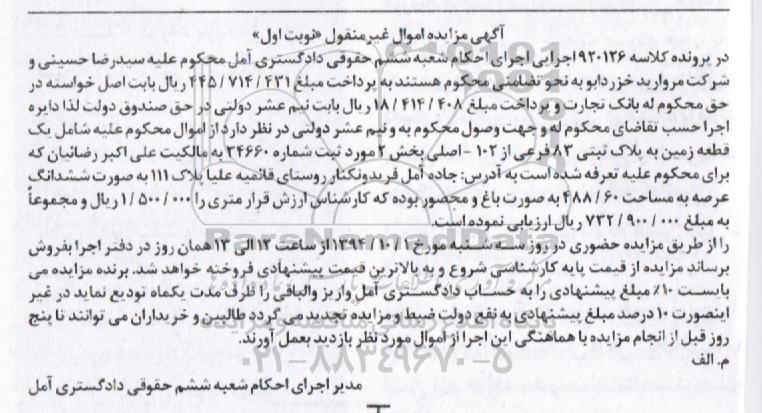 آگهی مزایده اموال غیر منقول «نوبت اول»
در پرونده کلاسه ۹۲۰۱۲۶ اجرایی اجرای احکام شعبه ششم حقوقی دادگستری آمل محکوم علیه سیدرضا حسینی و
شرکت مروارید خزر دابو به نحو تضامنی محکوم هستند به پرداخت مبلغ ۴۴۵/۷۱۴/۴۳۱ ریال بابت اصل خواسته در
حق محکوم له بانک تجارت و پرداخت مبلغ ۱۸/۴۱۴/۴۰۸ ریال بابت نیم عشر دولتی در حق صندوق دولت لذا دایره
اجرا حسب تقاضای محکوم له و جهت وصول محکوم به و نیم عشر دولتی در نظر دارد از اموال محکوم علیه شامل یک
قطعه زمین به پلاک ثبتی ۸۳ فرعی از ۱۰۲ - اصلی بخش ۲ مورد ثبت شماره ۳۴۶۶۰ به مالکیت علی اکبر رضائیان که
برای محکوم علیه تعرفه شده است به آدرس: جاده آمل فریدونکنار روستای قائمیه علیا پلاک ۱۱۱ به صورت ششدانگ
عرصه به مساحت ۴۸۸/۶۰ به صورت باغ و محصور بوده که کارشناس ارزش قرار متری را ۱/۵۰۰/۰۰۰ ریال و مجموعاً
به مبلغ ۷۳۲/۹۰۰/۰۰۰ ریال ارزیابی نموده است.
را از طریق مزایده حضوری در روز سه شنبه مورخ ۱۳۹۴/۱۰/۱ از ساعت ۱۲ الی ۱۳ همان روز در دفتر اجرا بفروش
برساند مزایده از قیمت پایه کارشناسی شروع و به بالاترین قیمت پیشنهادی فروخته خواهد شد. برنده مزایده می
بایست ۱۰٪ مبلغ پیشنهادی را به حساب دادگستری آمل واریز والباقی را ظرف مدت یکماه تودیع نماید در غیر
اینصورت ۱۰ درصد مبلغ پیشنهادی به نفع دولت ضبط و مزایده تجدید می گردد طالبین و خریداران می توانند تا پنج
روز قبل از انجام مزایده با هماهنگی این اجرا از اموال مورد نظر بازدید بعمل آورند.
م. الف
مدیر اجرای احکام شعبه ششم حقوقی دادگستری آمل
۰۲۱-۸۸۳۴۹۶۷۰-۵